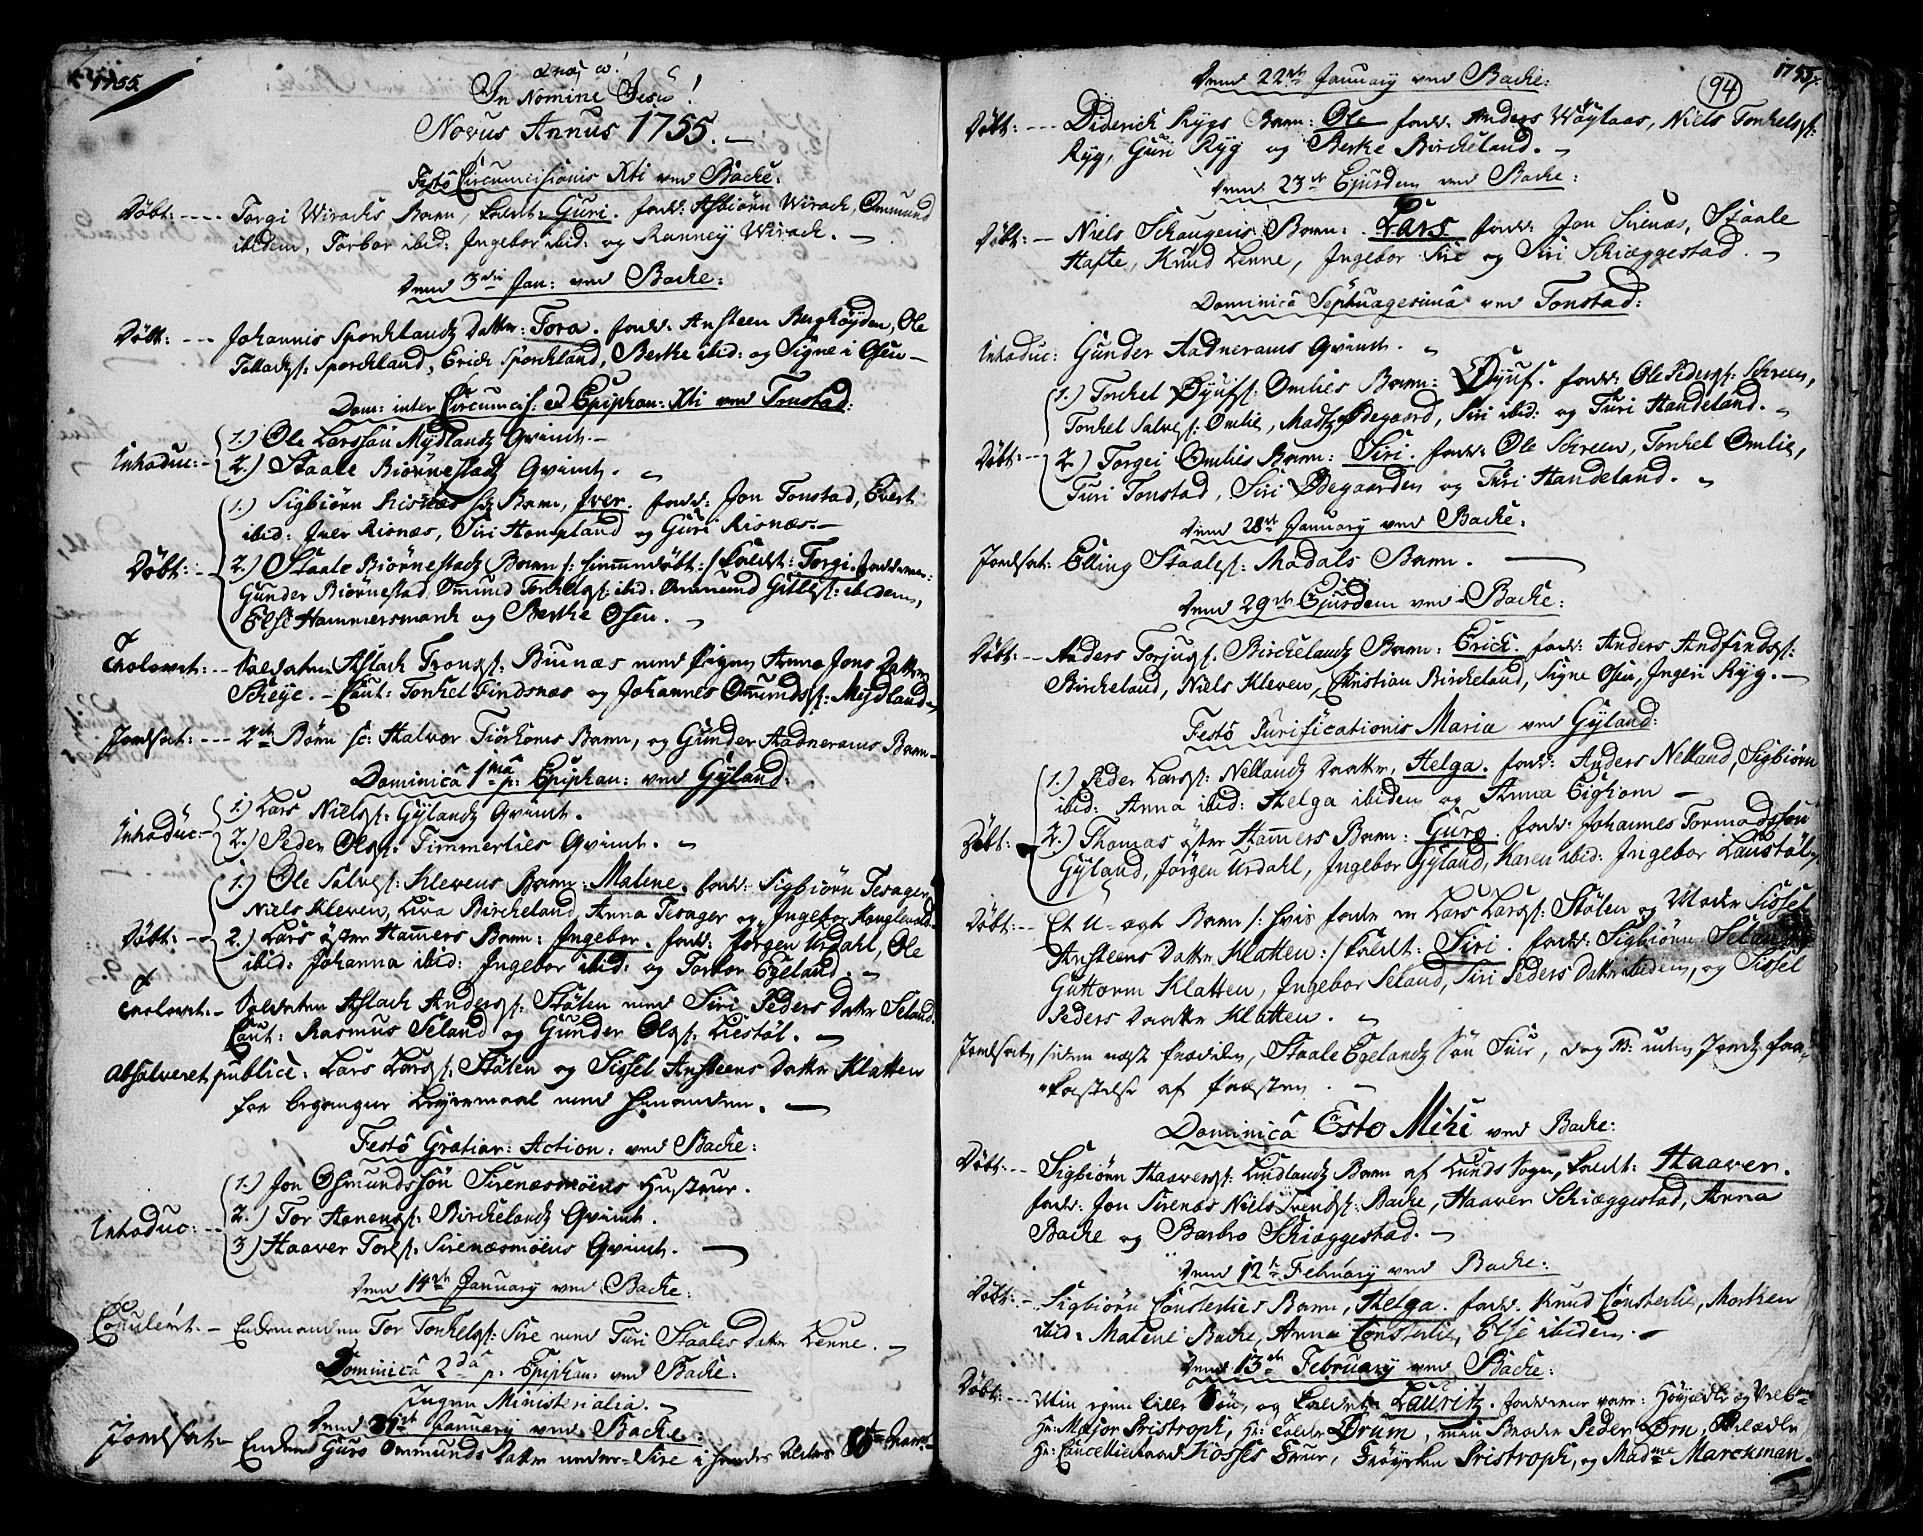 1755.
In Nomine Jesu!
Novus Annus 1755.
Festo Circumcisionis Xti ved Backe.
Døbt: Torgi Wirachs Barn, kaldt: Guri. fadd: Asbiørn Wirach, Ommund
ibidem, Torbor ibid: Ingebor ibid: og Ranney Wirach.
Dend 3die Jan: ved Backe:
Døbt: Johannis Sporcklandz Datter: Tora. fadd: Ansteen Berghøyden, Ole
Tollachs: Sporckland, Erich Sporckland, Berte ibid: og Signe i Osen
Dom: inter Circumcis: et Epiphan: Xti ved Tonstad:
Introduc: 1.) Ole Larssøn Mydlandz Qvinde.
2.) Staale Biørnestadz Qvinde.
Døbt: 1.) Sigbiørn Risnæs Barn, Iver. fadd: Jon Tonstad, Evert
ibid: Iver Risnæs, Siri Hompland og Guri Risnæs.
2.) Staale Biørnestadz Barn /: himmedøbt :/ kaldet: Torgi. fadderne:
Gunder Biørnestad, Omund Tonkels: ibid. Ommund Gittles: ibidem,
Else Hammersmarck og Berthe Osen.
Trolovet: Soldaten Aslach Trons: Biunæs med Pigen Anna Jons Datter
Scheye. Caut: Tonkel Findsnæs og Johannes Omunds: Mydland
Jordsat: 2de Børn sc: Halvor Tiørhoms Barn, og Gunder Aadnerams Barn
Dominica 1ma p: Epiphan: ved Gyland:
Introduc: 1.) Lars Niels: Gylandz Qvinde.
2.) Peder Ols: Timmerlies Qvinde.
Døbt: 1.) Ole Salves: Klevens Barn: Malene. fadd: Sigbiørn Tesager,
Niels Kleven, Liva Bircheland, Anna Tesager og Ingebor
2.) Lars øster Hamers Barn: Ingebor. fadd: Jørgen Urdahl, Ole
ibid: Johanna ibid: Ingebor ibid: og Torbor Egeland.
Trolovet: Soldaten Aslach Anders: Støten med Siri Peders Datter Seland.
Caut: Rasmus Seland og Gunder Ols: Liestøl.
Absolveret publice: Lars Lars: Støten og Sissel Ansteens Datter Klatten
for begangen Leyermaal med hinanden.
Festo Gratiar: Action: ved Backe:
Introduc: 1.) Jon Osmundssøn Sirenæsmoens Hustrue.
2.) Tor Aanens: Birchelandz Qvinde.
3.) Haaver Tores: Sirenæsmoens Qvinde.
Dend 14de January ved Backe:
Copuleret: Enckemanden Tor Tonkels: Sire med Turi Staales Datter Lenne.
Dominica 2da p. Epiphan: ved Backe:
Ingen Ministerialia.
Dend 21de January ved Backe:
Jordsat: Encken Guro Ommunds Datter neder-Sire i hendes Alders
94
1755.
Dend 22de January ved Backe:
Døbt: Diderich Rygs Barn: Ole fadd: Anders Wøylaas, Niels Tonkels:
Ryg, Guri Ryg og Berte Bircheland.
Dend 23de Ejusdem ved Backe:
Døbt: Niels Schougens Barn: Lars fadd: Jon Sirenæs, Staale
Hafte, Knud Lenne, Ingebor Sire og Siri Schiæggestad.
Dominica Septuagesima ved Tonstad:
Introduc: Gunder Aadnerams Qvinde.
Døbt: 1.) Torchel Øyufs: Omlies Barn: Øyuf. fadd: Ole Peders: Schreen,
Tonkel Salves: Omlie, Madtz Ødegaard, Siri ibid: og Turi Handeland.
2.) Torgei Omlies Barn: Siri. fadd: Ole Schreen, Tonkel Omlie,
Turi Tonstad, Siri Ødegaarden og Turi Handeland.
Dend 28de January ved Backe:
Jordsat: Elling Staales: Modals Barn.
Dend 29de Ejusdem ved Backe:
Døbt: Anders Torjus: Birchelandz Barn: Erich. fadd: Anders Andfinds:
Bircheland, Niels Kleven, Christian Bircheland, Signe Osen, Ingeri Ryg.
Festo Purificationis Maria ved Gyland:
Døbt: 1.) Peder Lars: Nellandz Daatter, Helga. fadd: Anders Nelland, Sigbiørn
ibid: Anna ibid: Helga ibidem og Anna Eighom
2.) Thomas øster Hamers Barn: Guro. fadd: Johannes Tormodssøn
Gyland, Jørgen Urdahl, Ingebor Gyland, Karen ibid: Ingebor Launstøl,
Døbt: Et U-ægte Barn /: hvis fader er Lars Lars: Støten og Moder Sissel
Ansteens Datter Klatten :/ kaldet: Siri. fadd: Sigbiørn Seland
Guttorm Klatten, Ingebor Seland, Siri Peders Datter ibidem, og Sissel
Peders Daatter Klatten.
Jordsat, siden næst Præcken, Staale Egelandz Søn Siur, dog NB: uden Jords Paa-
kastelse af Præsten.
Dominica Esto Mihi ved Backe:
Døbt: Sigbiørn Haavers: Lundlandz Barn af Lunds Sogn, kaldet: Haaver.
fadd: Jon Sirenæs Niels Svends: Backe, Haaver Schiæggestad, Anna
Backe og Barbro Schiæggestad.
Dend 12te February ved Backe:
Døbt: Sigbiørn Consterlies Barn, Helga. fadd. Knud Consterlie, Morten
ibid: Malene Backe, Anna Consterlie, Else ibidem.
Dend 13de February ved Backe:
Døbt: Min egen lille Søn, og kaldet: Lauritz. fadderne vare: Høyædle og Velb:
Hr: Major Pristroph, Hr: Falck Drum, min Broder Peder Ørn, Velædle
Hr: Cancellieraad Kosses Frue, Frøyken Pristroph, og Madme Marckman.